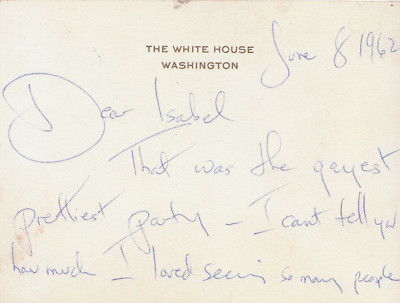 THE WHITE HOUSE
WASHINGTON
June 8 1962
Dear Isabel
That was the gayest
prettiest party – I cant tell you
how much I loved seeing so many people